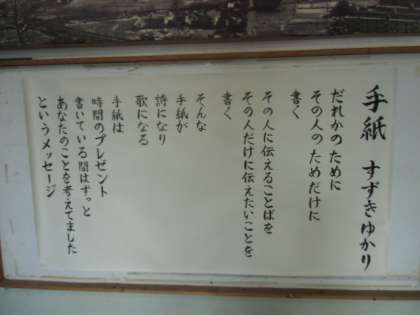 手紙 すずきゆかり
だれかのために
その人のためだけに
書く
その人に伝えることばを
その人だけに伝えたいことを
書く
そんな
手紙が
詩になり
歌になる
手紙は
時間のプレゼント
書いている間はずっと
あなたのことを考えてました
というメッセージ